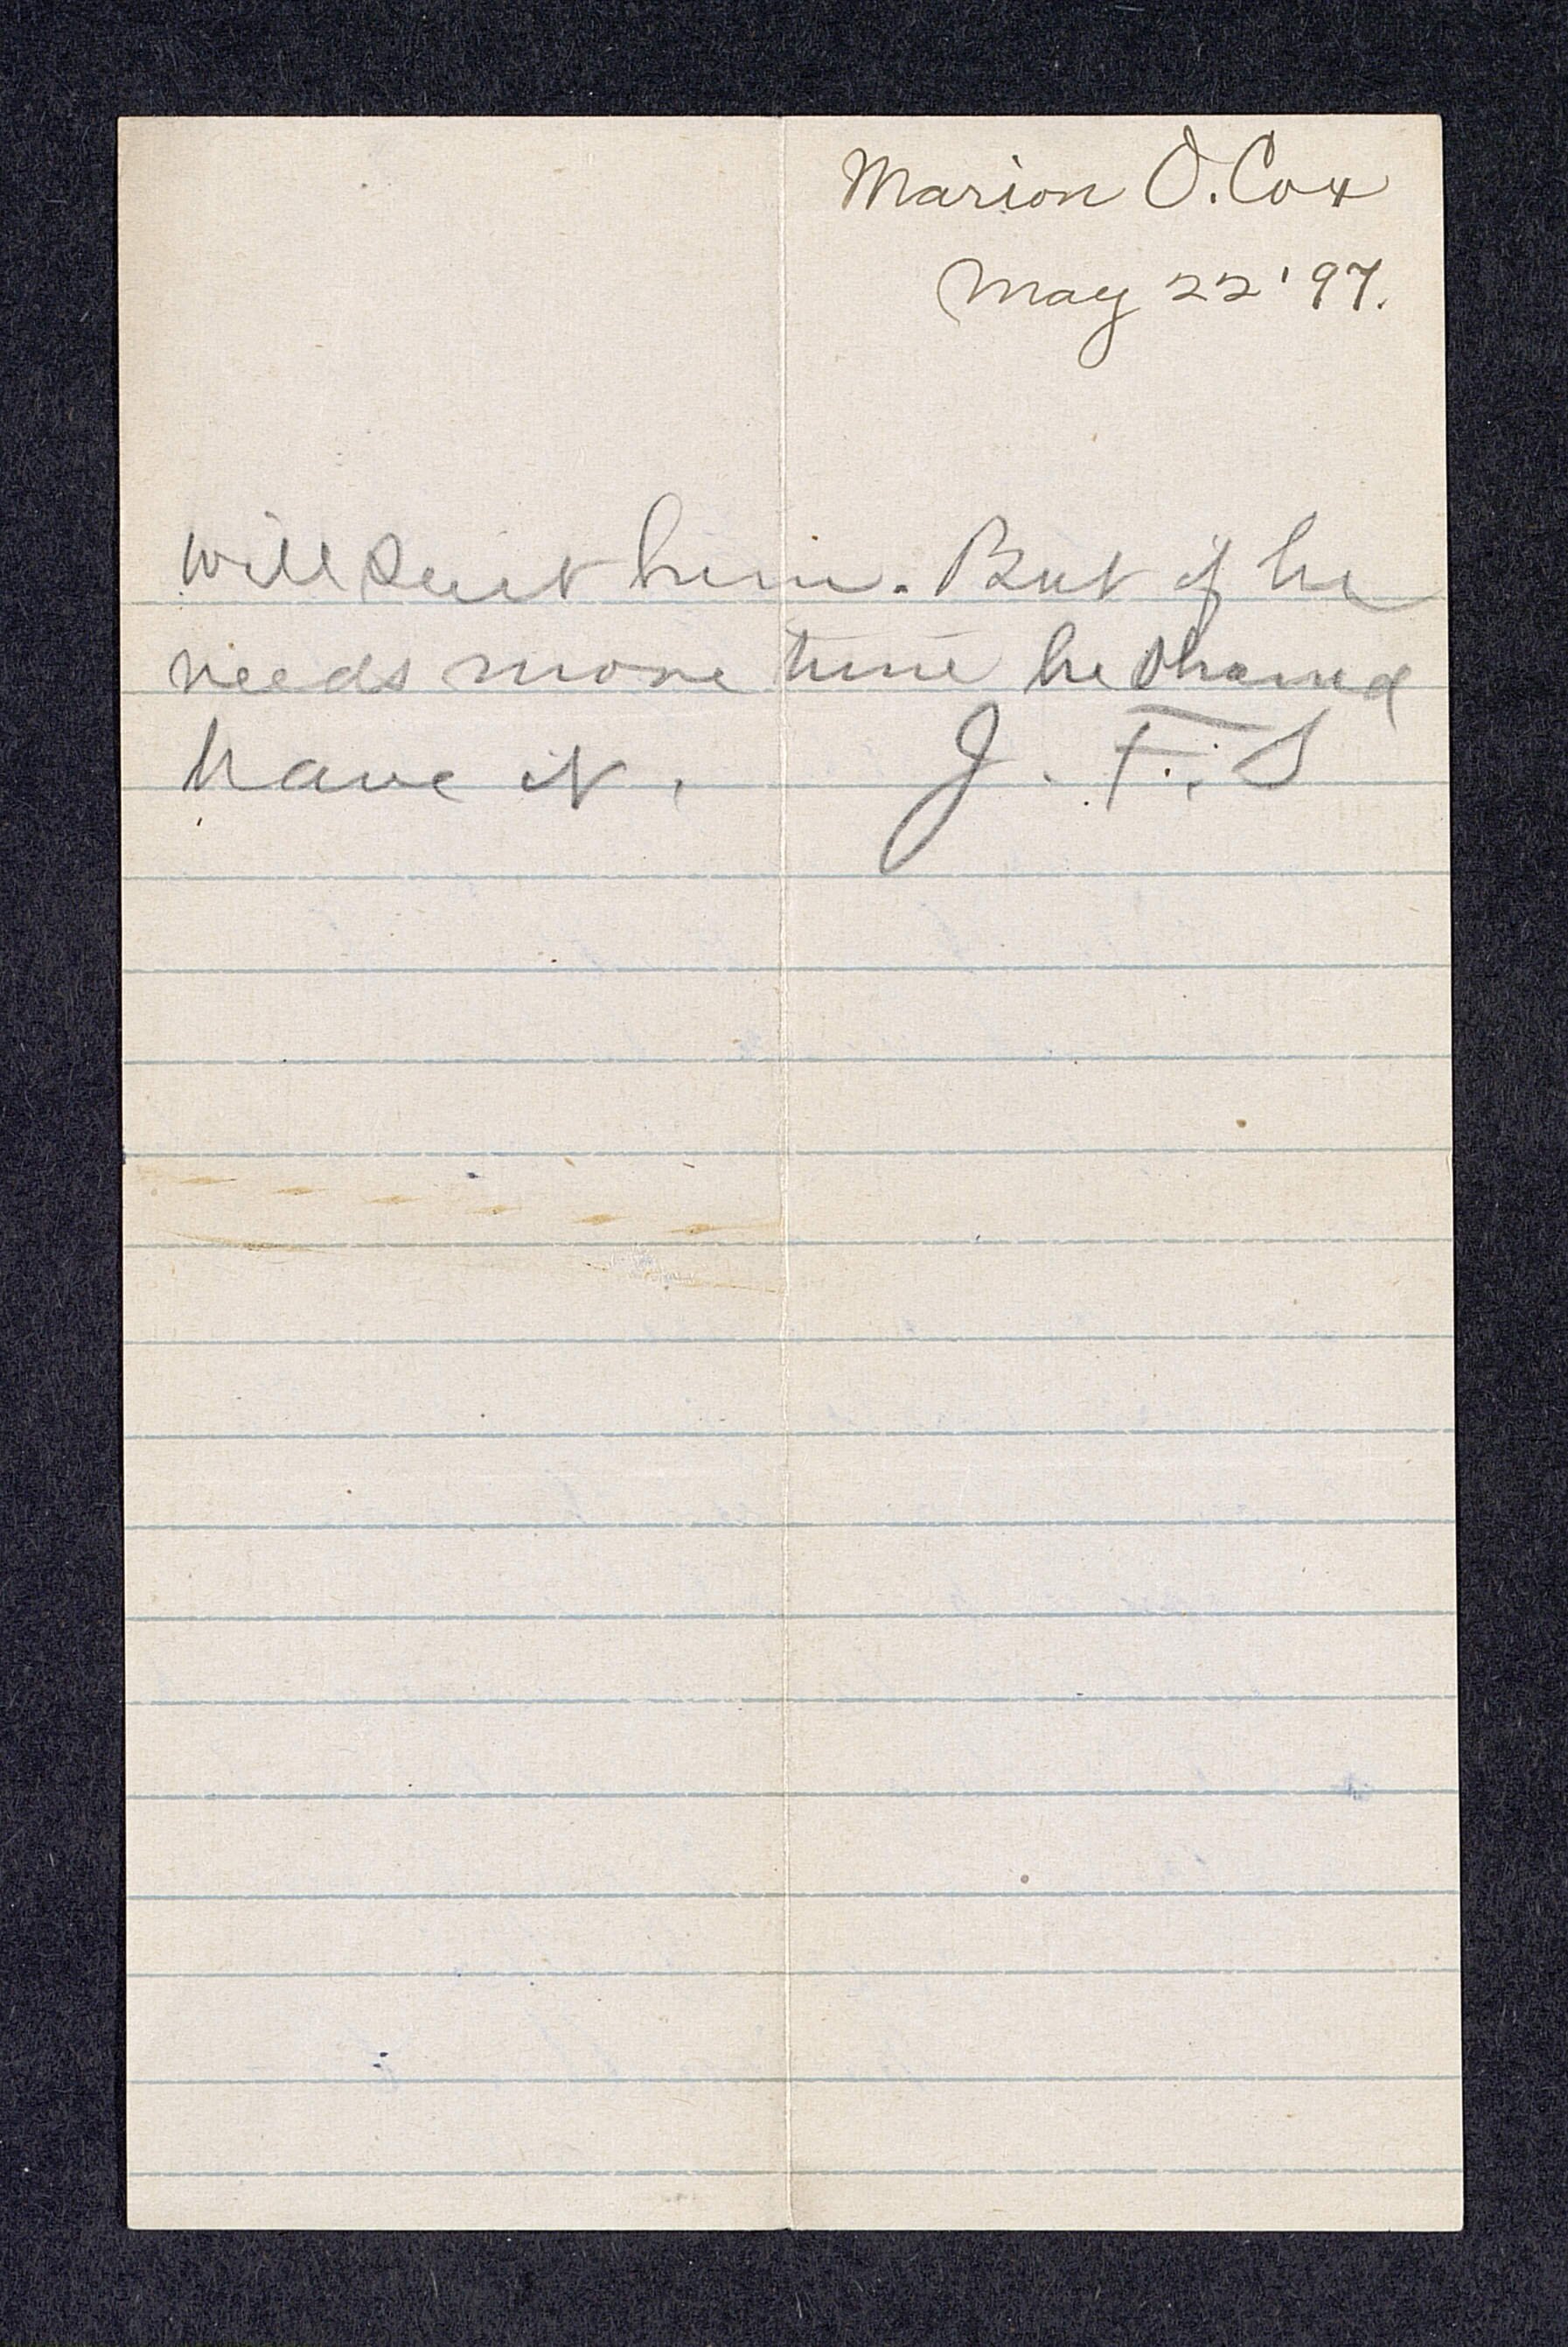 Marion O. Cox
May 22 '97.
will suit him. But if he
needs more time he should
have it. J. F. S